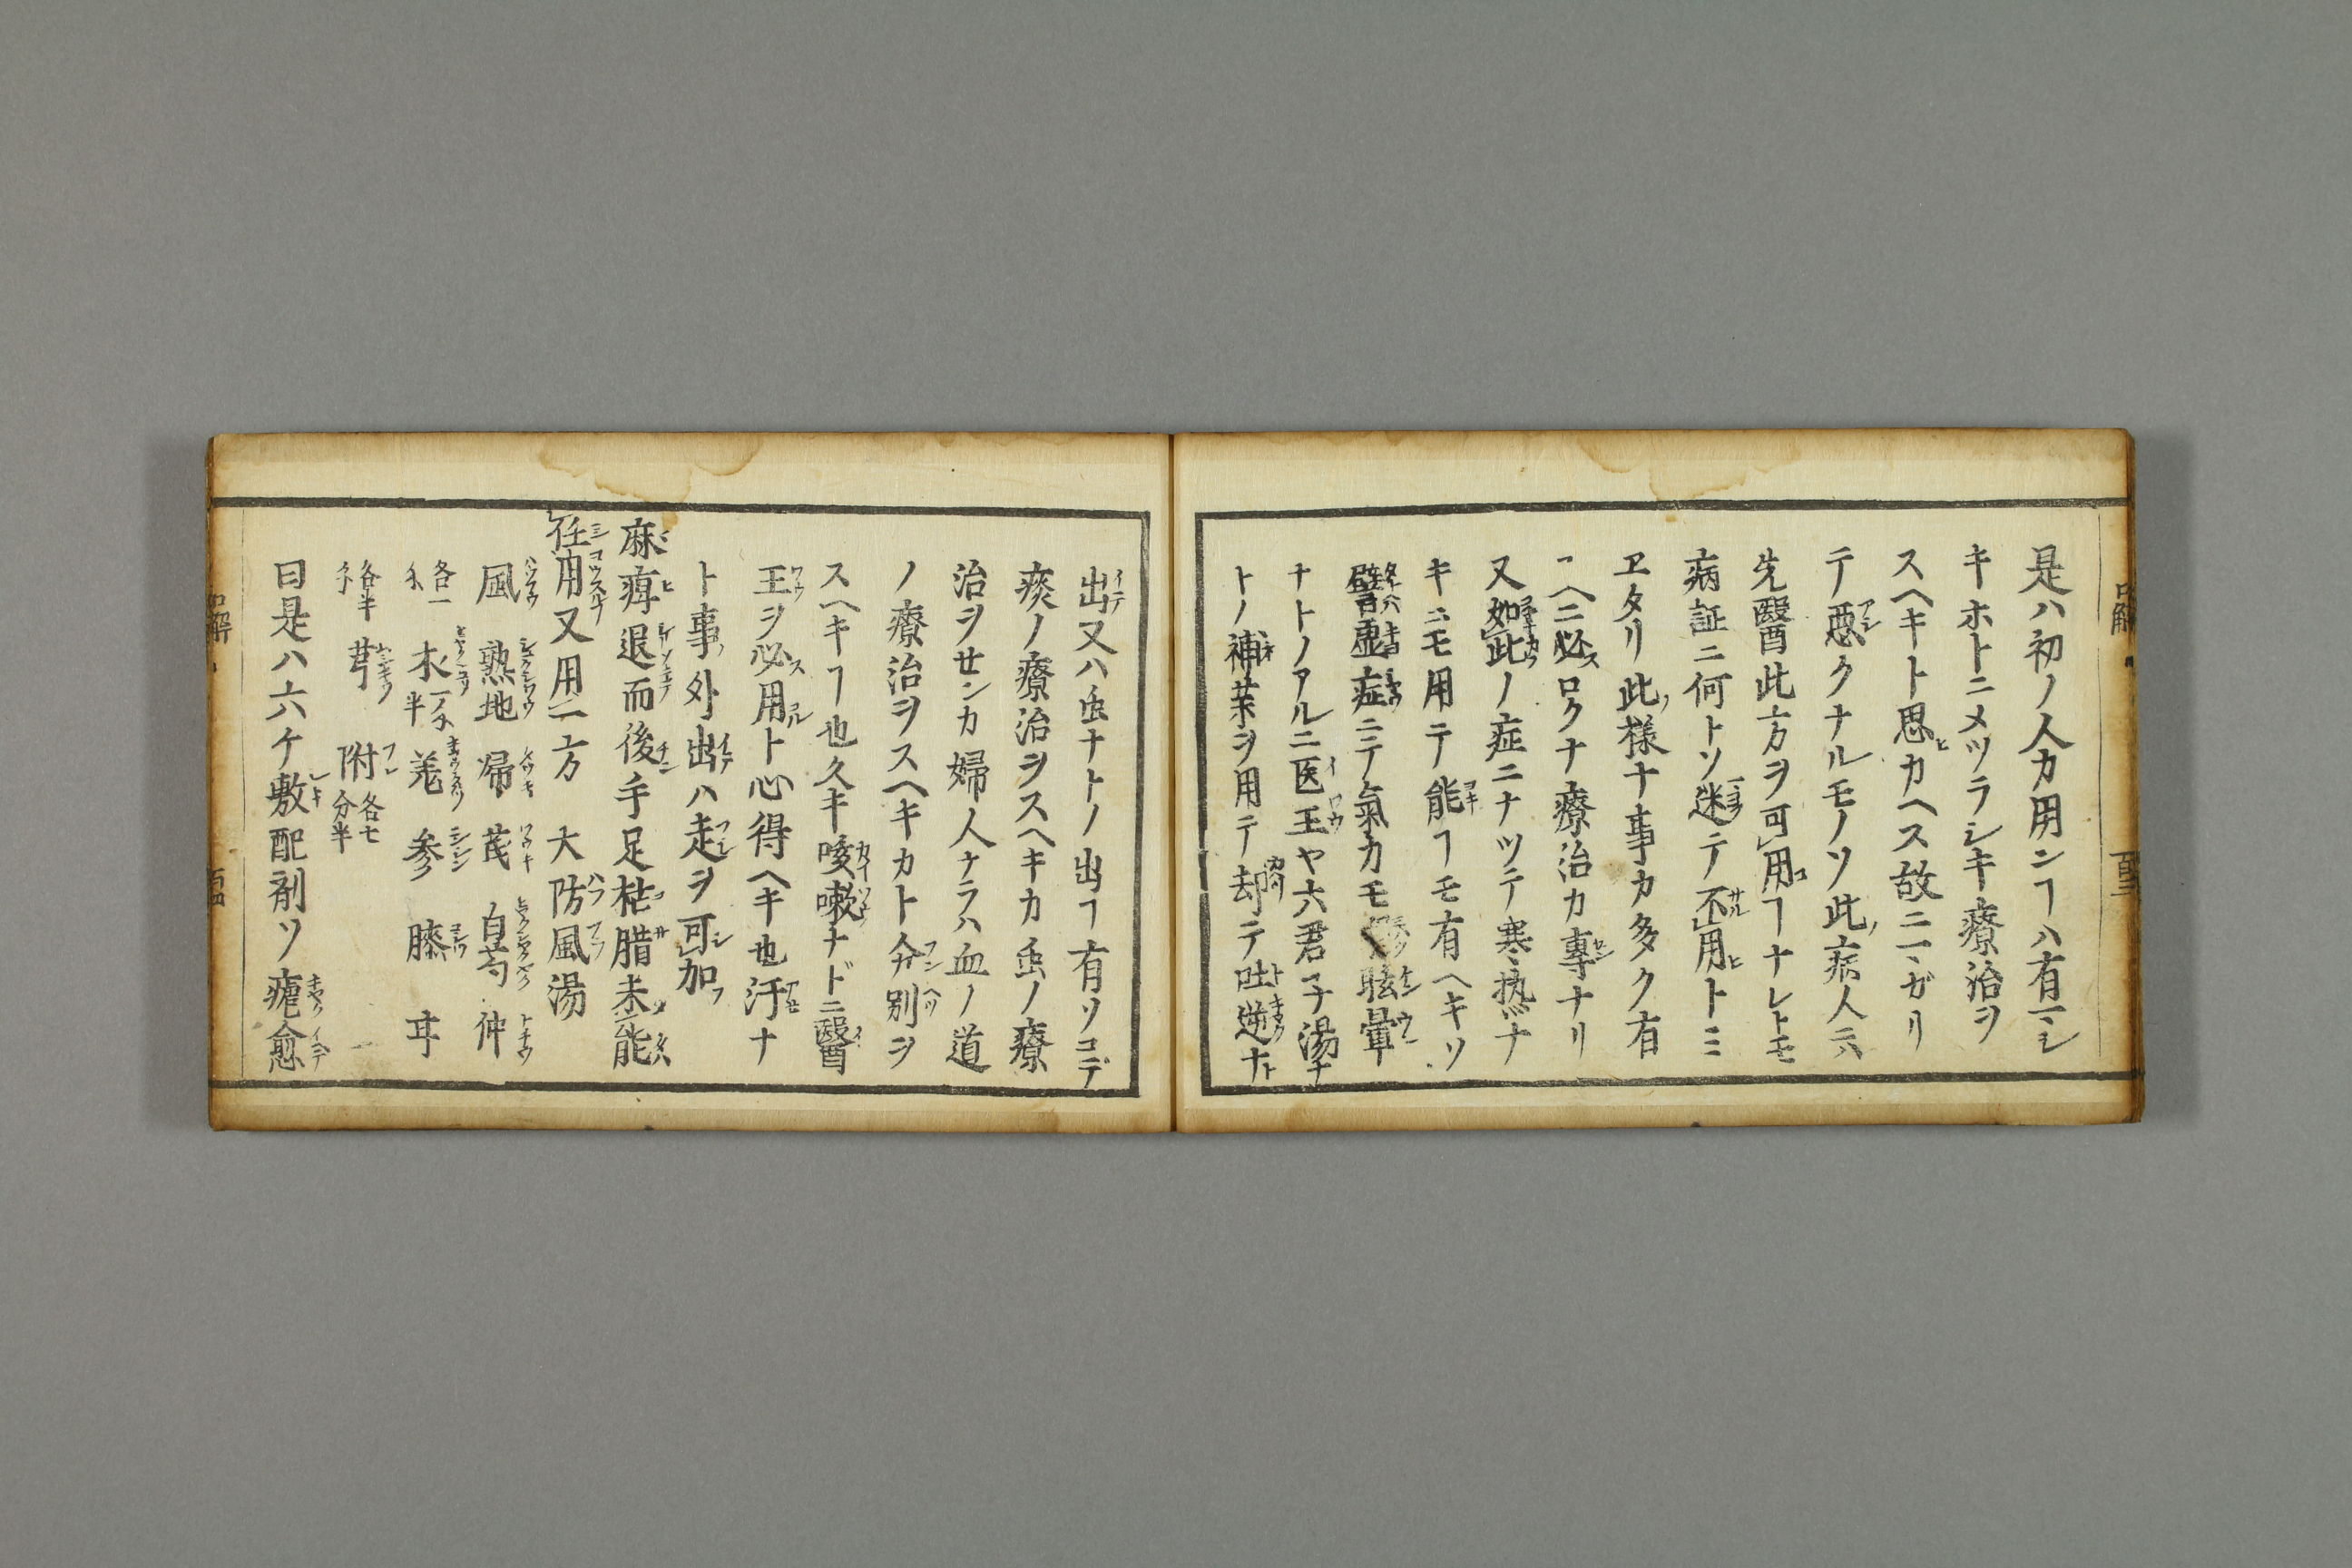 是ハ初ノ人カ用ンヿハ有マシ
キホトニメツラシキ療治ヲ
スヘキト思カヘス故ニマヽガリ
テ悪クナルモノソ此病人ニハ
先醫此方ヲ可用ヿナレトモ
病証ニ何トソ迷テ不用トミ
ヱタリ此様ナ事カ多ク有
ヘニ必ロクナ療治カ專ナリ
又如此ノ症ニナツテ寒热ナ
キニモ用テ能ヿモ有ヘキソ
譬虚症ニテ氣力モ眩暈
ナトノアルニ医王ヤ六君子湯ナ
トノ補薬ヲ用テ却テ吐逆ナト
出又ハ虫ナトノ出ヿ有ソコデ
痰ノ療治ヲスヘキカ虫ノ療
治ヲせンカ婦人ナラハ血ノ道
ノ療治ヲスヘキカト分別ヲ
スヘキヿ也久キ咳嗽ナドニ醫
王ヲ必用ト心得ヘキ也汗ナ
ト事外出ハ走ヲ可加
麻痺退而後手足枯腊未能
任用又用一方 大防風湯
風 熟地 帰 茂 白芍 仲
各一 朮 半 羗 参 膝 耳
各半 芎 附 各七分半
曰是ハ六ケ敷配剤ソ瘧愈